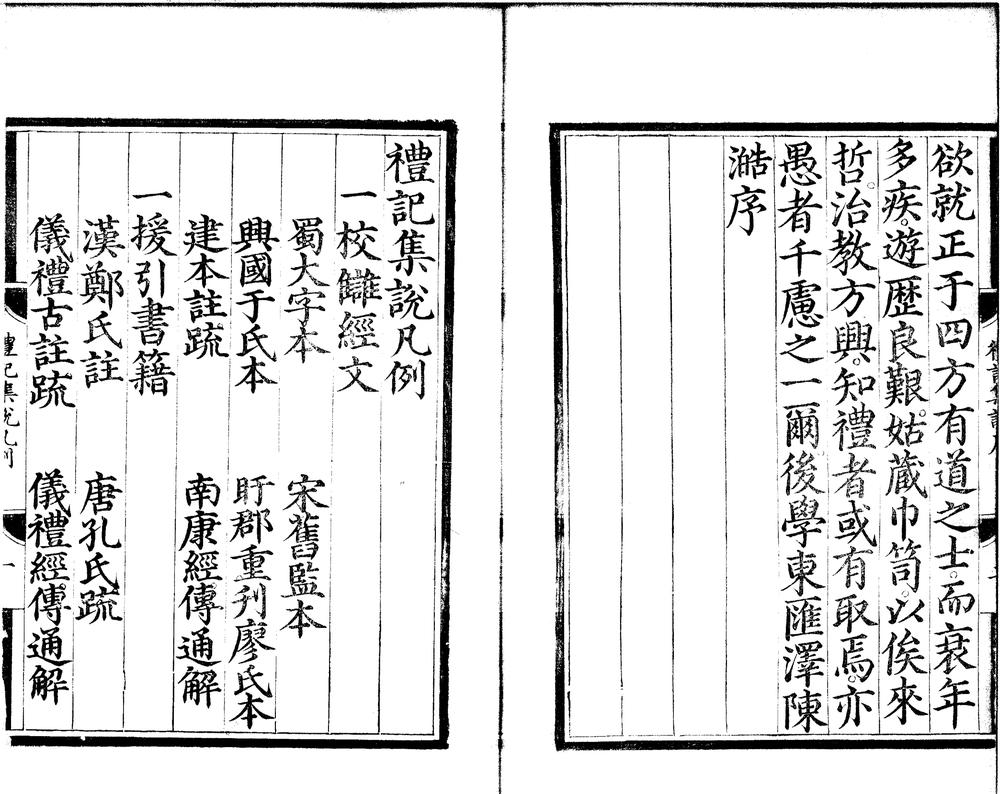 欲就正于四方有道之士。而衰年
多疾。遊歷良艱。姑藏巾笥。以俟來
哲。治教方興。知禮者或有取焉。亦
愚者千慮之一爾後學東匯澤陳
澔序
禮記集說凡例
一校讎經文
蜀大字本　宋舊監本
興國于氏本　盱郡重刋廖氏本
建本註疏　南康經傳通解
一援引書籍
漢鄭氏註　唐孔氏疏
儀禮古註疏　儀禮經傳通解
禮記集說凡例
一